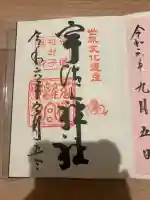 世界文化遺産
宇治上神社
令和六年九月五日
令和六年九月五日